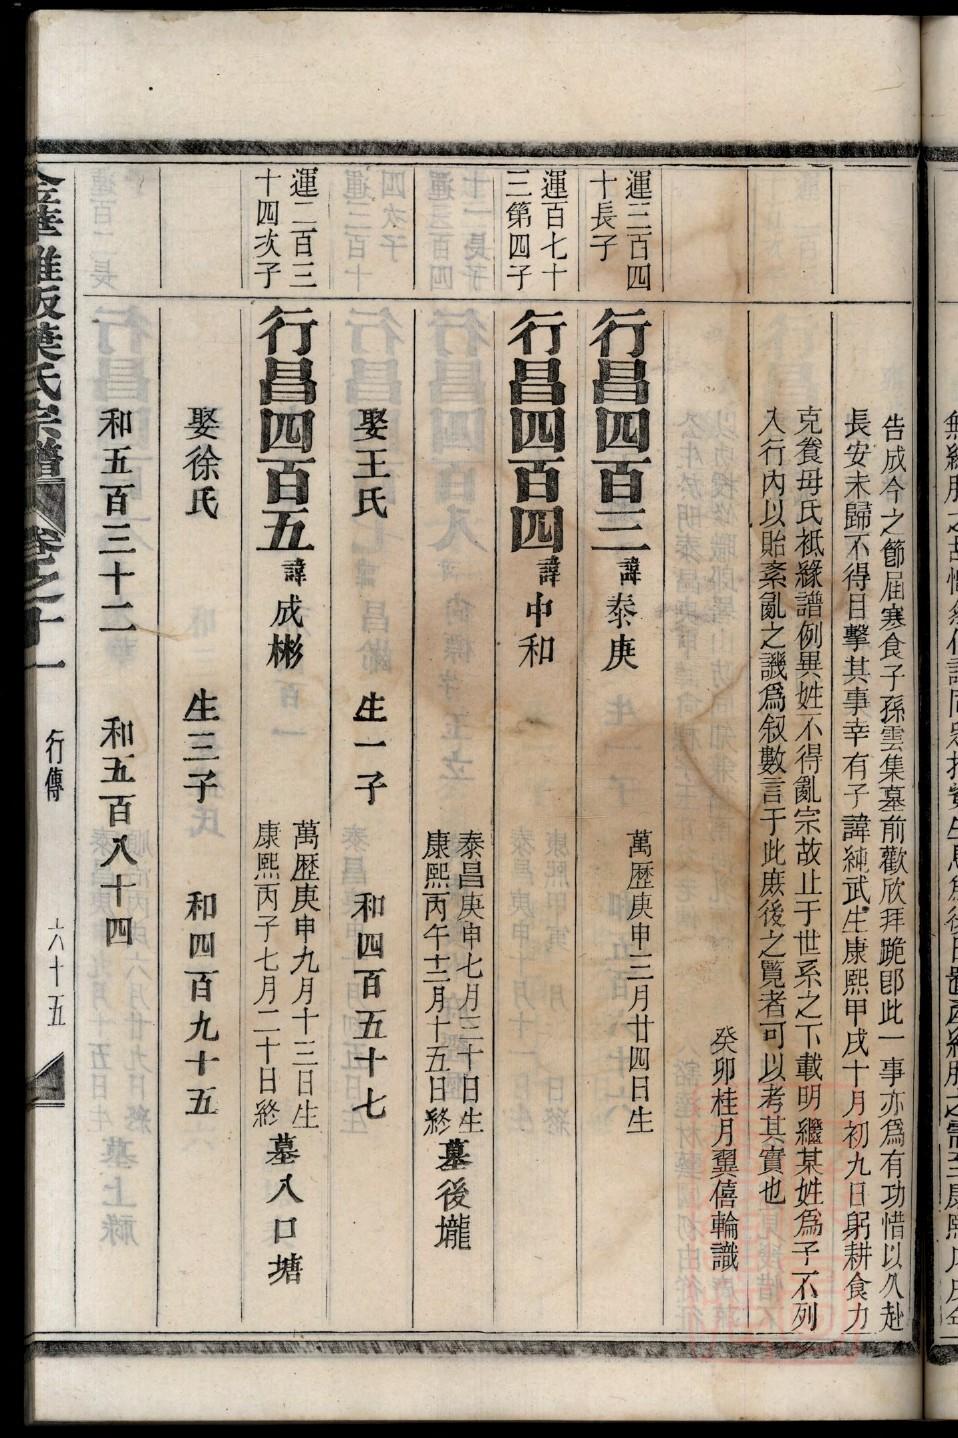 告成今之節屆寒食子孫雲集墓前歡欣拜跪卽此一事亦爲有功惜以久赴
長安未歸不得目擊其事幸有子諱純武生康熙甲戌十月初九日躬耕食力
克養母氏祗緣譜例異姓不得亂宗故止于世系之下載明繼某姓爲子不列
入行內以貽紊亂之譏爲叙數言于此庶後之覽者可以考其實也
癸卯桂月翼僖輪識
運三百四
十長子
行昌四百三 諱泰庚
萬歷庚申三月廿四日生
運百七十
三第四子
行昌四百四 諱中和
泰昌庚申七月三十日生
康熙丙午十二月十五日終
墓後壠
娶王氏 生一子 和四百五十七
運二百三
十四次子
行昌四百五 諱成彬
萬歷庚申九月十三日生
康熙丙子七月二十日終
墓八口塘
娶徐氏 生三子 和四百九十五
和五百三十二 和五百八十四
葉氏宗譜 卷之十一 行傳 六十五